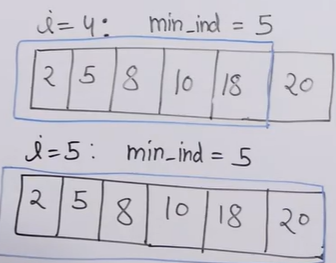 i=4: min_ind = 5
2 5 8 10 18 20
i=5: min_ind = 5
2 5 8 10 18 20